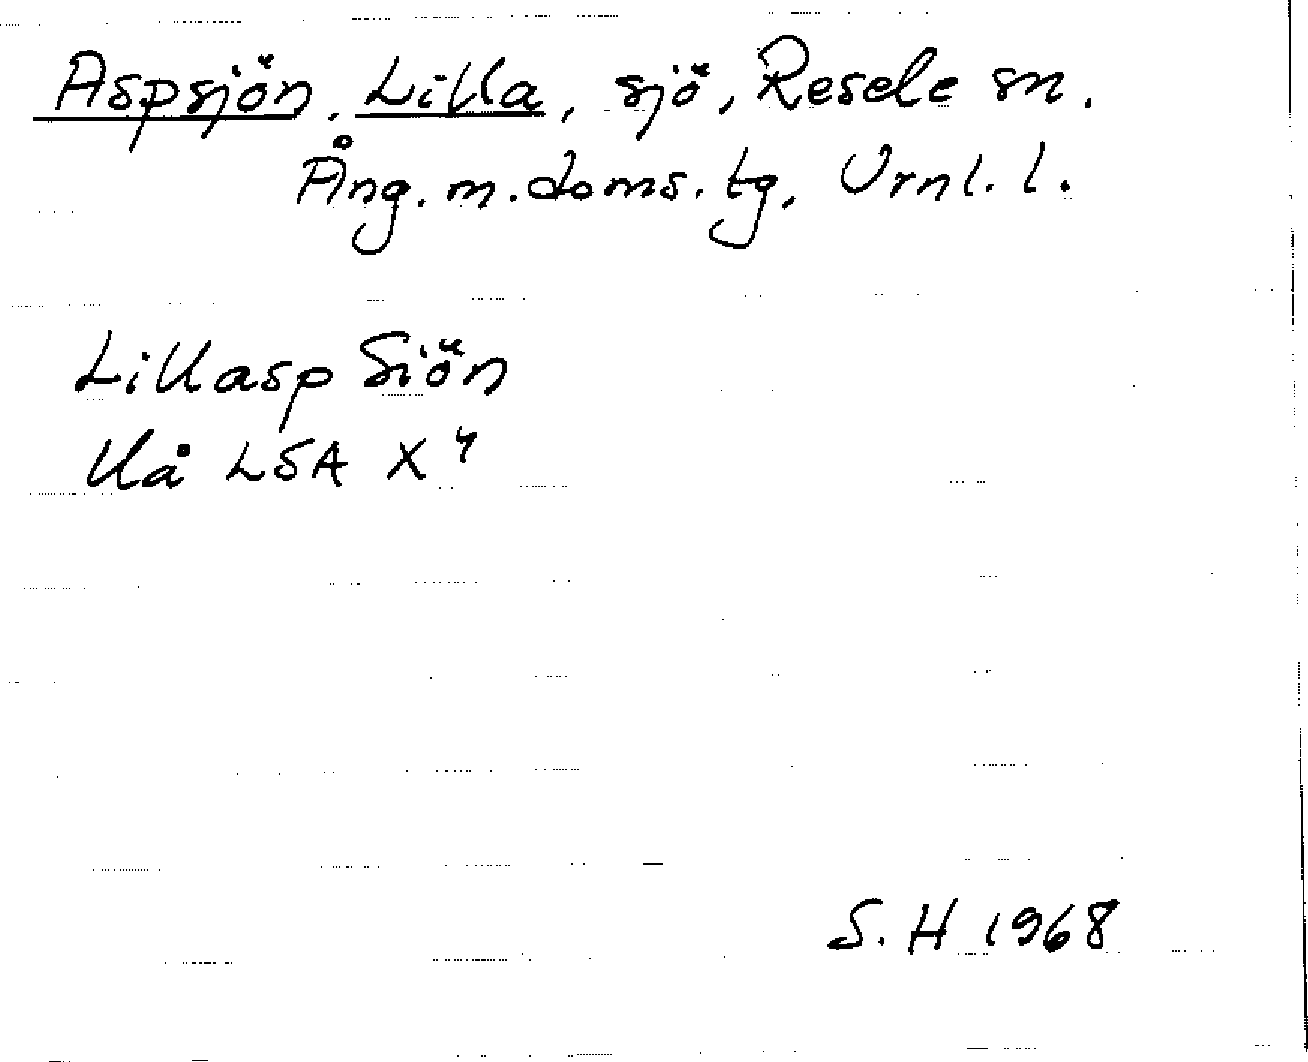 Aspsjön, Lilla, sjö, Resele sn.
Ång. m. doms. tg, Vrnl. l.
Lillasp Siön
Uå LSA X 4
S. H 1968